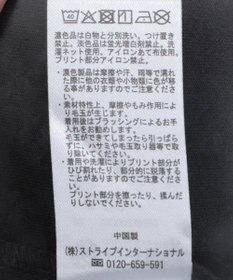 濃色品は白物と分別洗い、つけ置き
禁止。淡色品は蛍光増白剤禁止。洗
濯ネット使用、アイロンあて布使用。
プリント部分アイロン禁止。
・濃色製品は摩擦や汗、雨等で濡れ
た際に他の衣類や小物類に色が移
る事がありますのでご注意くださ
い。
・素材特性上、摩擦やもみ作用によ
り毛玉が生じます。
着用後はブラッシングによるお手
入れをお勧めします。
毛玉ができてしまったら引っぱら
ずに、ハサミや毛玉取り器等で取
り除いてください。
・着用や洗濯によりプリント部分が
ひび割れたり、部分的に脱落する
ことがあります。
プリント部分を擦ったり、揉んだ
りしないでください。
中国製
(株)ストライプインターナショナル
0120-659-591